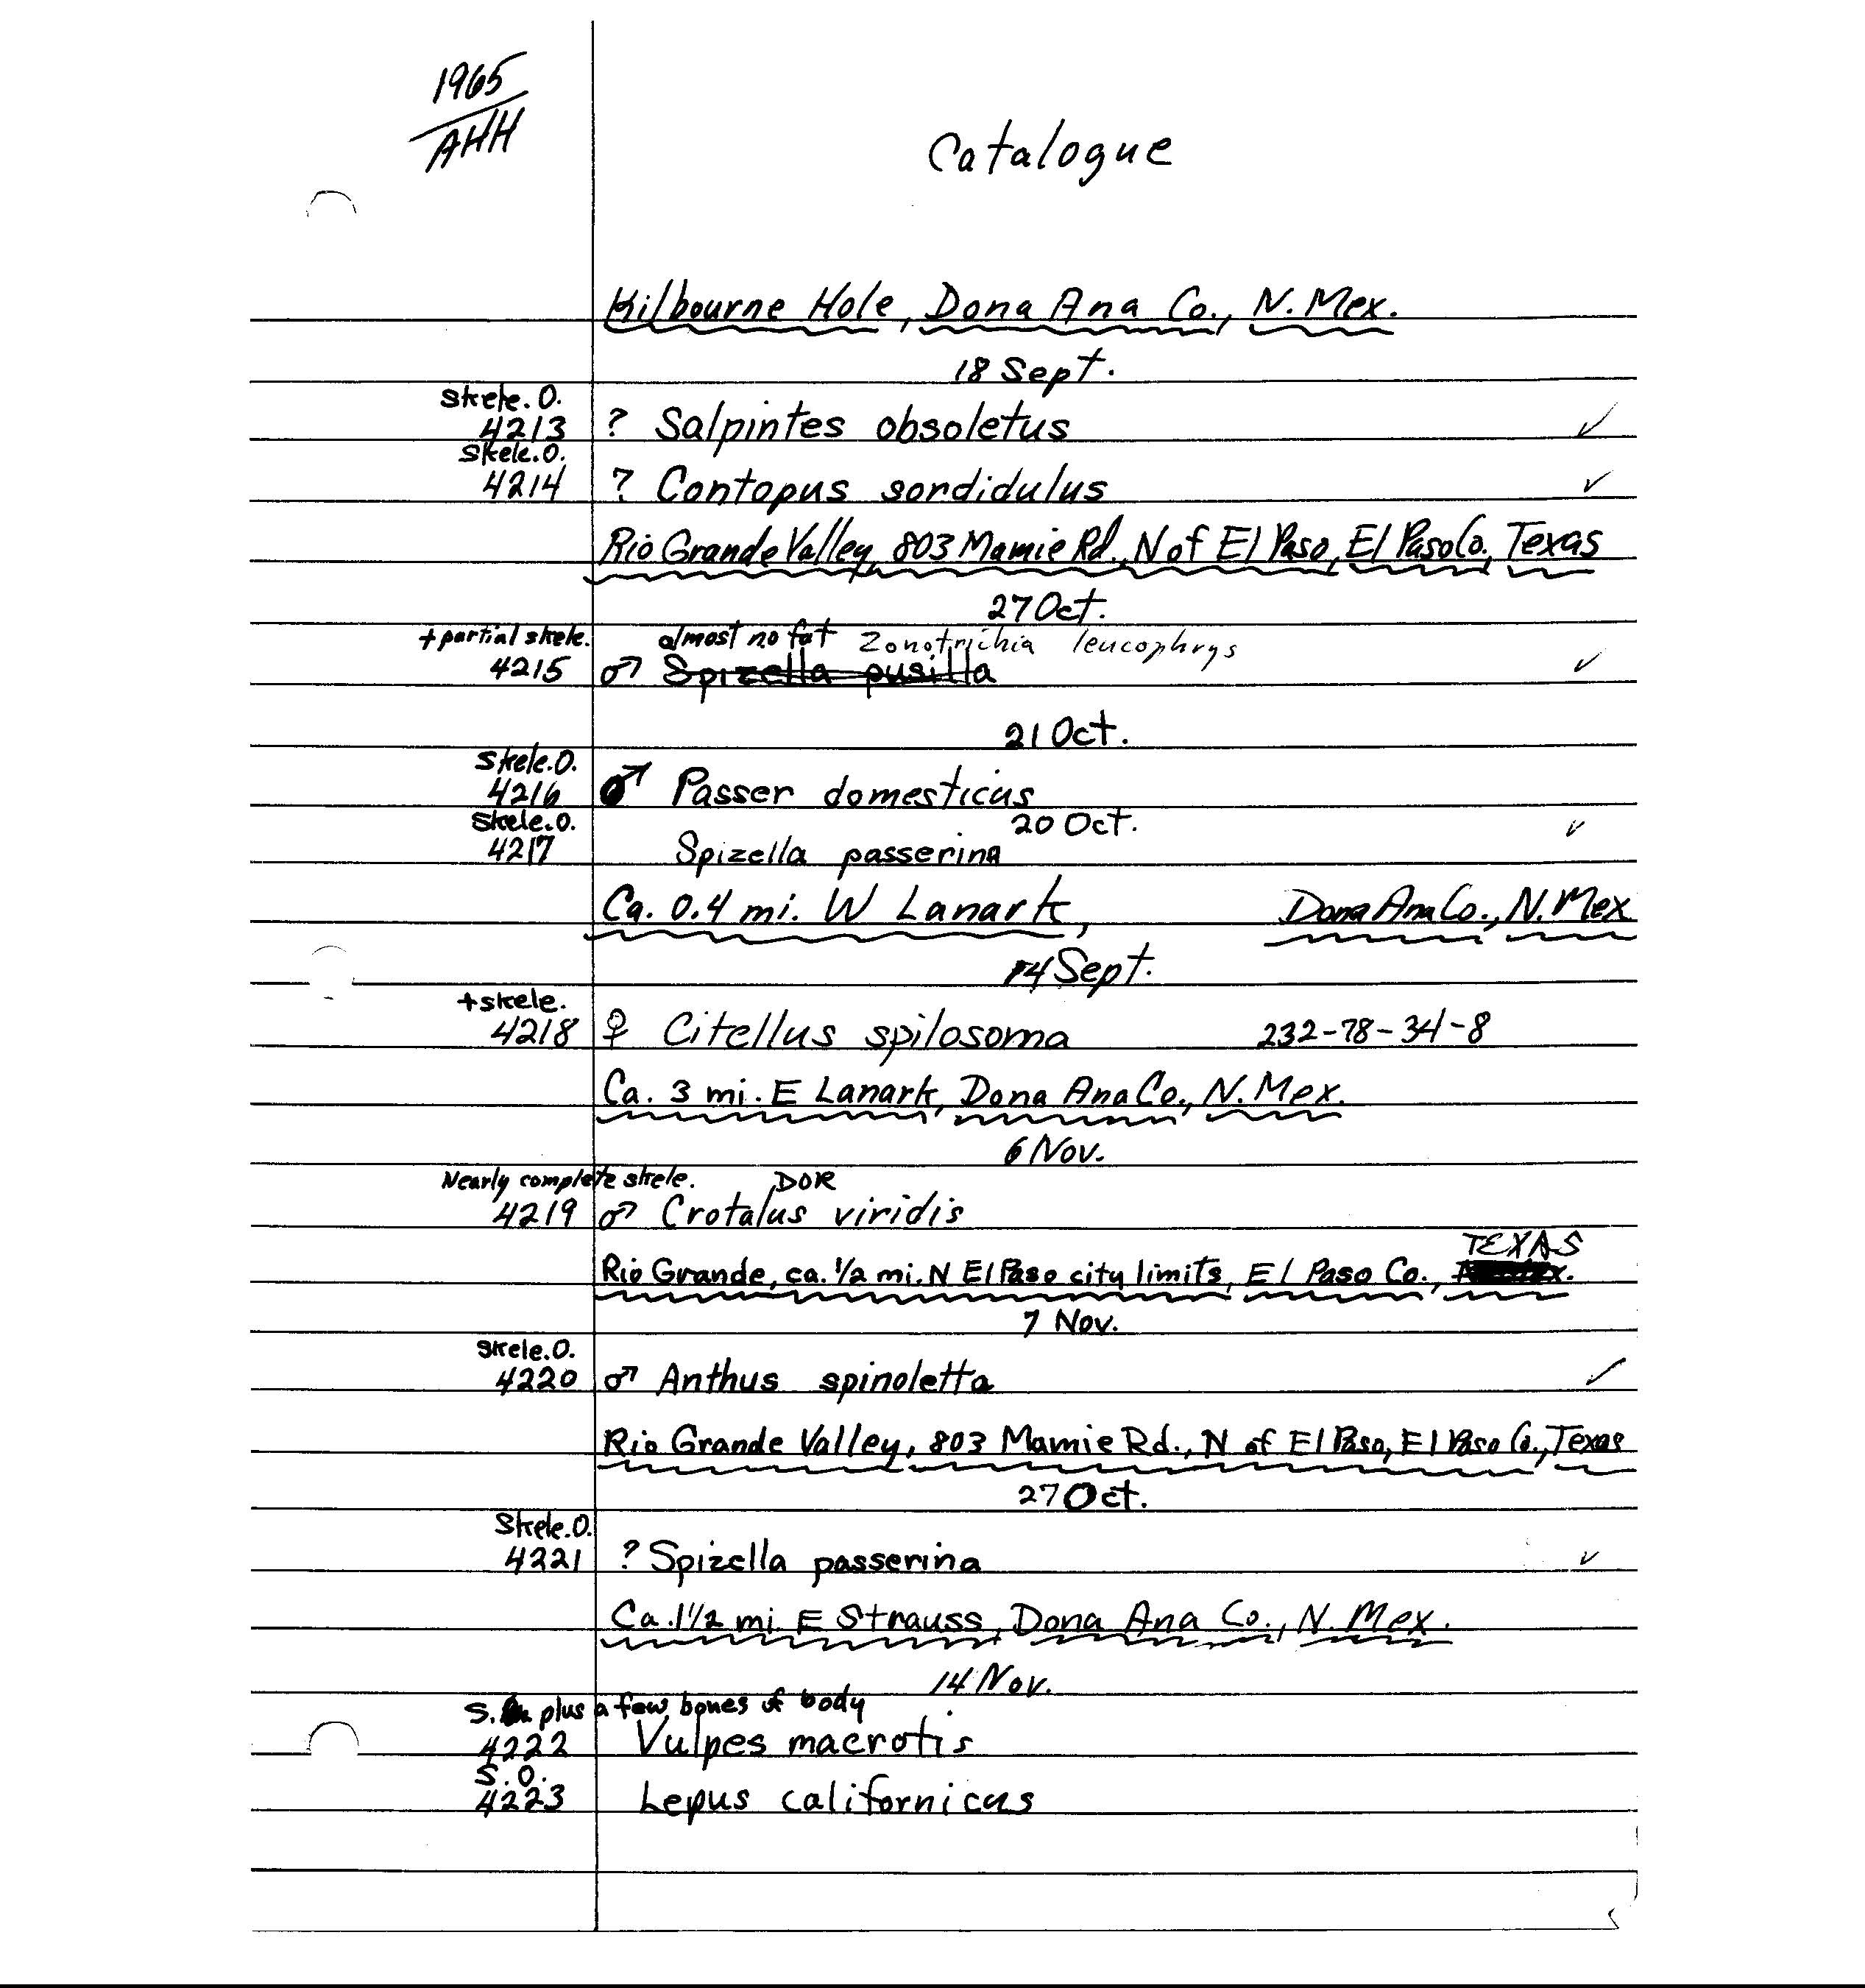 1965
AHH
Catalogue
Kilbourne Hole, Dona Ana Co., N. Mex.
18 Sept.
Skele. O.
4213 ? Salpintes obsoletus ✓
Skele. O.
4214 ? Contopus sordidulus ✓
Rio Grande Valley, 803 Mamie Rd., N of El Paso, El Paso Co., Texas
27 Oct.
+ partial skele. almost no fat Zonotrichia leucophrys
4215 ♂ Spizella pusilla ✓
21 Oct.
Skele. O.
4216 ♂ Passer domesticus
Skele. O. 20 Oct. ✓
4217 Spizella passerina
Ca. 0.4 mi. W Lanark, Dona Ana Co., N. Mex
14 Sept.
+ skele.
4218 ♀ Citellus spilosoma 232-78-34-8
Ca. 3 mi. E Lanark, Dona Ana Co., N. Mex.
6 Nov.
Nearly complete skele. DOR
4219 ♂ Crotalus viridis
TEXAS
Rio Grande, ca. 1/2 mi. N El Paso city limits, El Paso Co.,
7 Nov.
Skele. O.
4220 ♂ Anthus spinoletta ✓
Rio Grande Valley, 803 Mamie Rd., N of El Paso, El Paso Co., Texas
27 Oct.
Skele. O.
4221 ? Spizella passerina ✓
Ca. 1 1/2 mi. E Strauss, Dona Ana Co., N. Mex.
14 Nov.
S. plus a few bones of body
4222 Vulpes macrotis
S. O.
4223 Lepus californicus